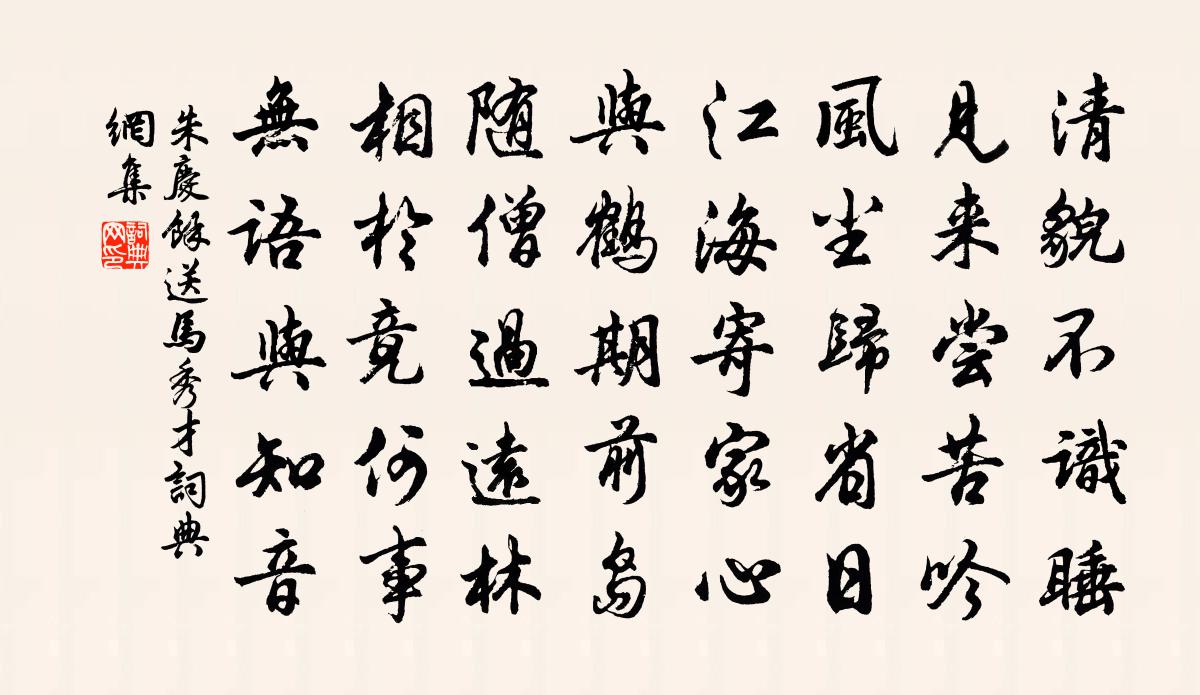 清貌不識睡
見来尝苦吟
風尘歸省日
江海寄家心
與鶴期前島
随僧過遠林
相於竟何事
無語與知音
朱慶餘送馬秀才詞典
網集
詞典
网印